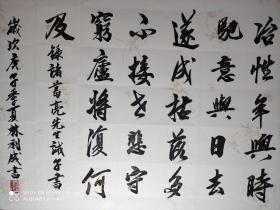 冶性年與時
馳意與日去
遂成枯落多
不接世悲守
窮廬將復何
及 錄諸葛亮先生誡子書
歲次庚子季夏林利成書